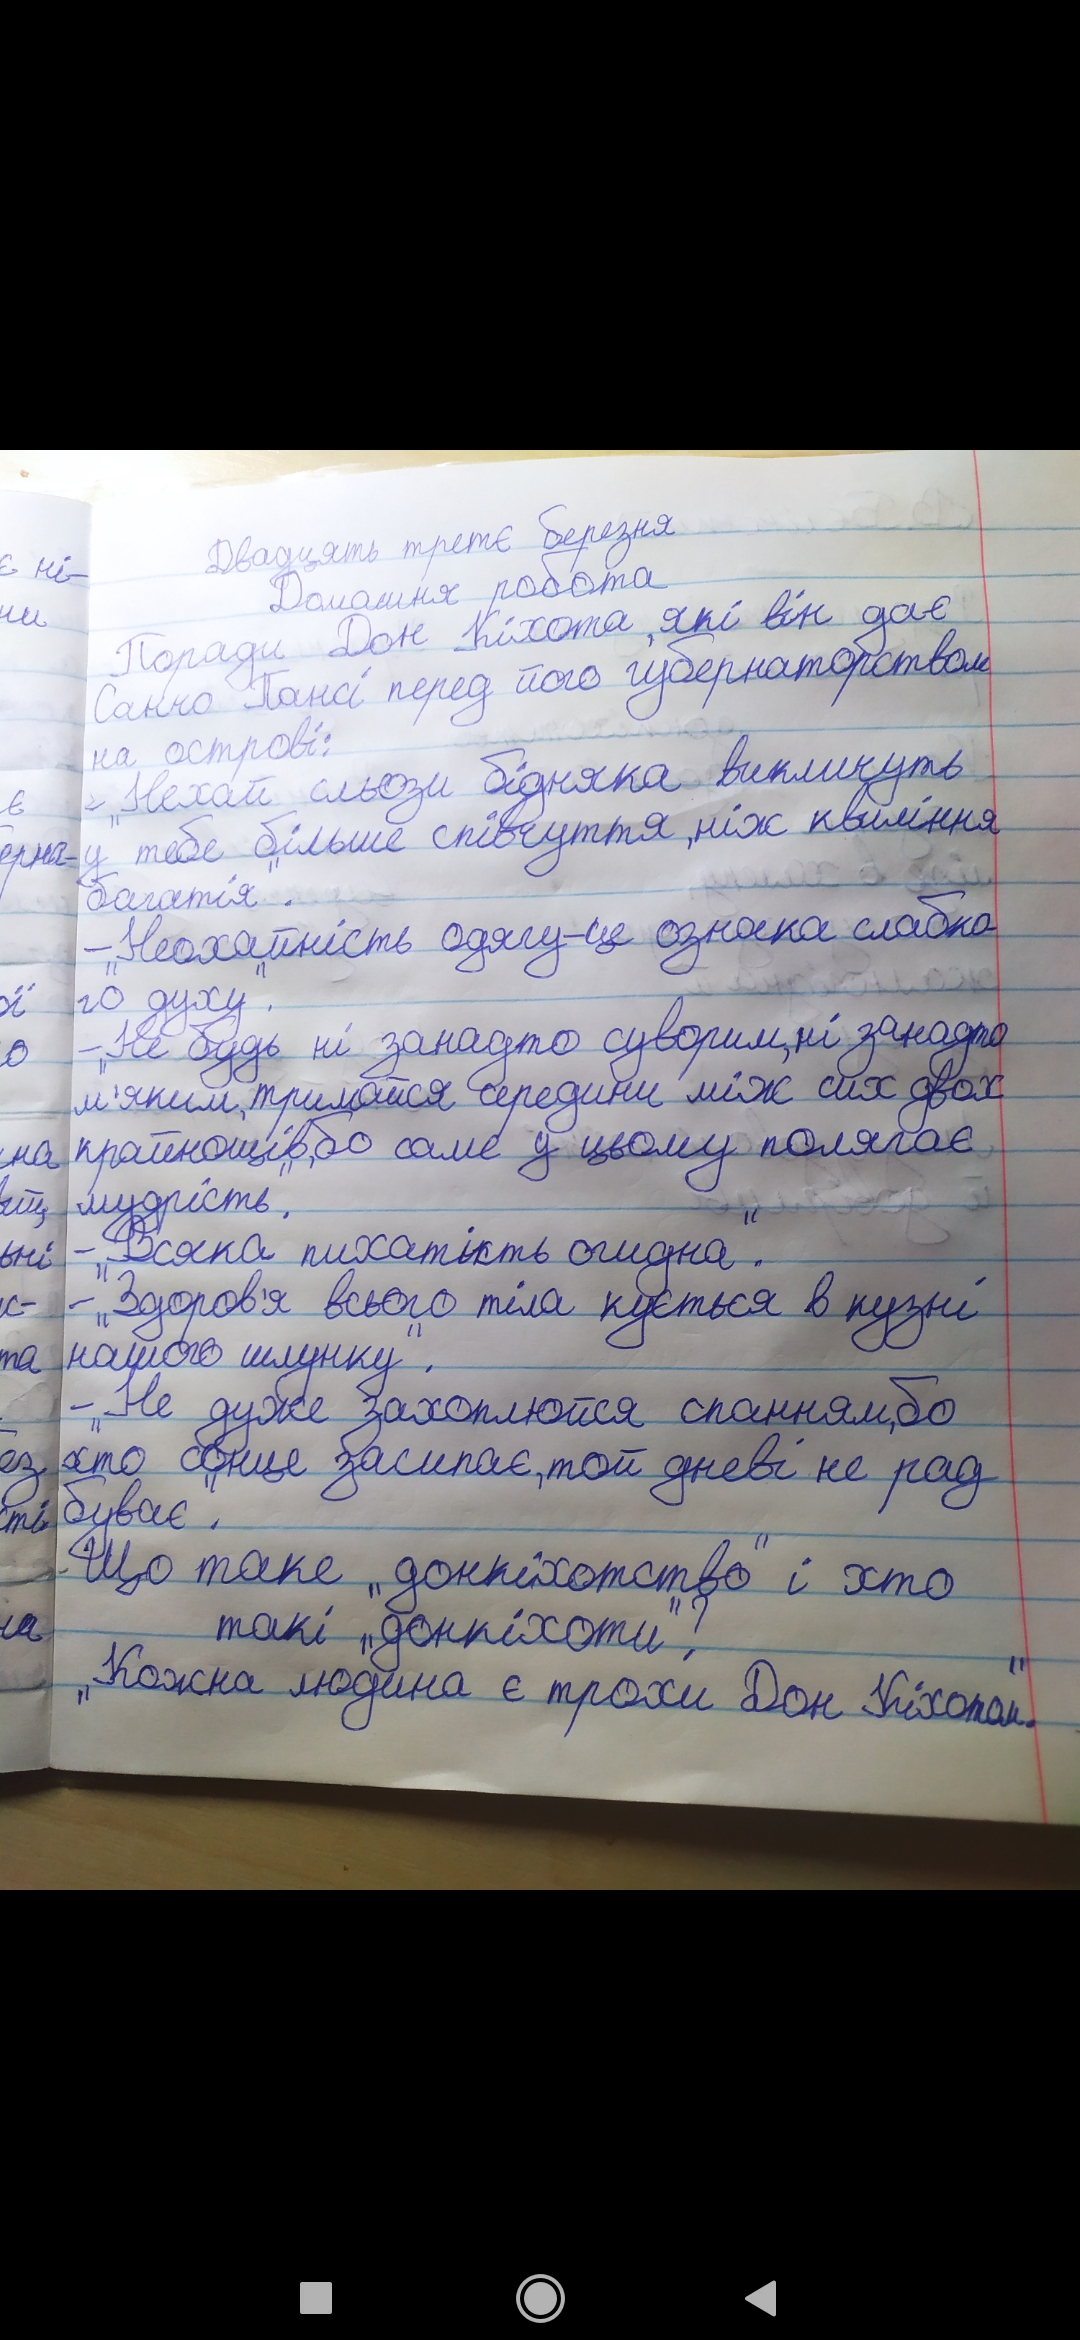 є ні-
ни
є
ерна-
ої
о
на
вит,
ьні
ис-
та
ез
сть
на
Двадцять третє березня
Домашня робота
Поради Дон Кіхота, які він дає
Санчо Пансі перед його губернаторством
на острові:
- „Нехай сльози бідняка викличуть
у тебе більше співчуття, ніж квиління
багатія".
- „Неохайність одягу-це ознака слабко-
го духу".
- „Не будь ні занадто суворим, ні занадто
м'яким, тримайся середини між сих двох
крайнощів, бо саме у цьому полягає
мудрість".
- „Всяка пихатість огидна".
- „Здоров'я всього тіла кується в кузні
нашого шлунку".
- „Не дуже захоплюйся спанням, бо
хто сонце засипає, той дневі не рад
буває".
Що таке „донкіхотство" і хто
такі „донкіхоти"?
„Кожна людина є трохи Дон Кіхотом".